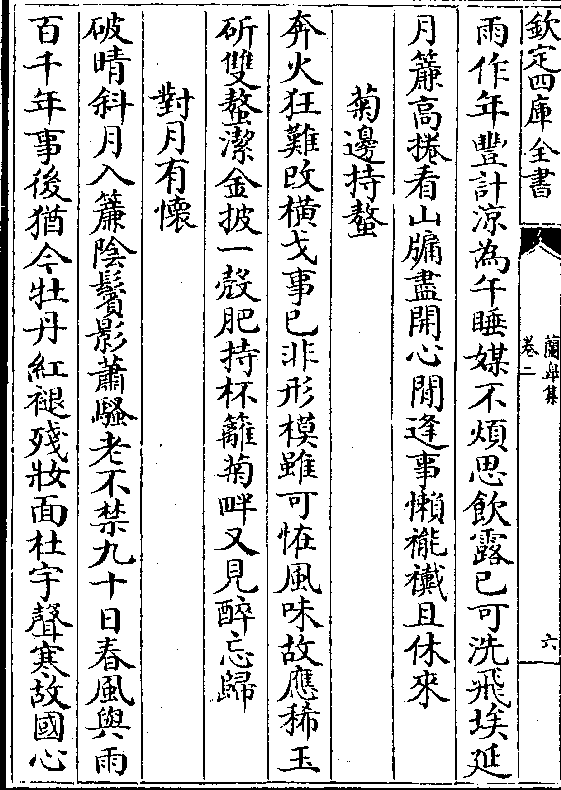 欽定四庫全書
蘭臯集
卷二
六
雨作年豐計涼為午睡媒不煩思飲露已可洗飛埃延
月簾高捲看山牖盡開心閒逢事懶襹襶且休來
菊邊持螯
奔火狂難改橫戈事已非形模雖可恠風味故應稀玉
斫雙螯潔金披一殻肥持杯籬菊畔又見醉忘歸
對月有懷
破晴斜月入簾陰鬢影蕭騷老不禁九十日春風與雨
百千年事後猶今牡丹紅褪殘妝面杜宇聲寒故國心